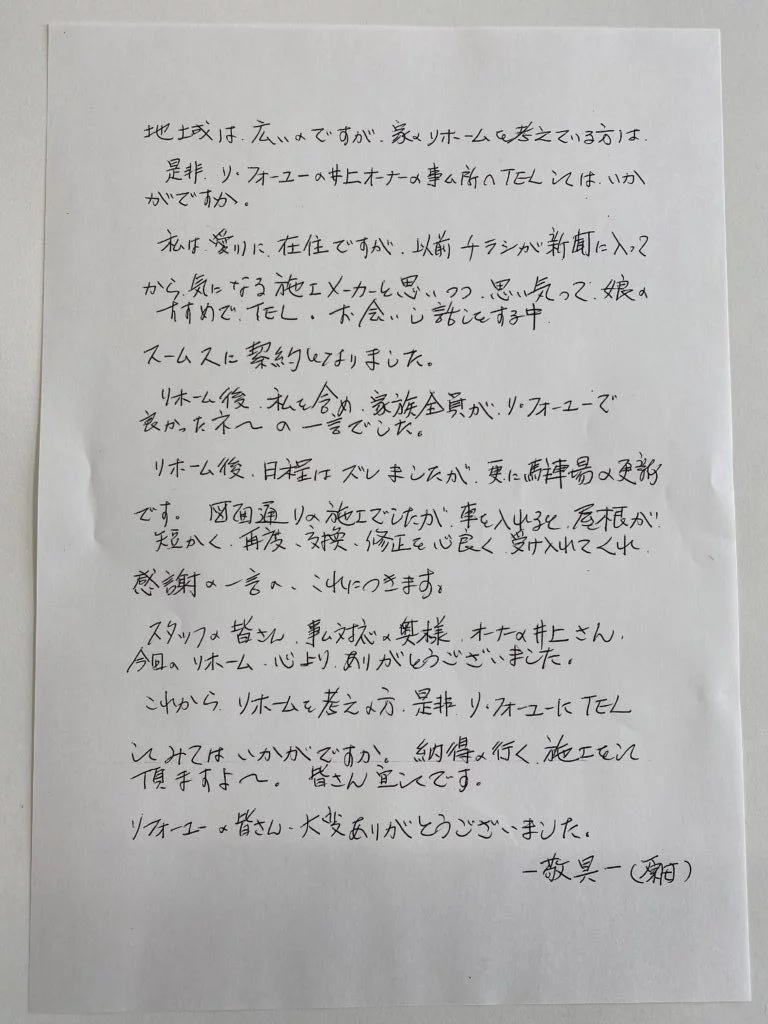 地域は、広いのですが、家のリホームを考えている方は、
是非、リ・フォーユーの井上オーナーの事ム所へTELしては、いか
がですか。
私は愛川に在住ですが、以前チラシが新聞に入って
から、気になる施工メーカーと思いつつ、思い気って、娘の
すすめで、TEL、お会いし話しをする中、
スームスに契約となりました。
リホーム後、私を含め、家族全員が、リ・フォーユーで
良かったネ〜の一言でした。
リホーム後、日程はズレましたが、更に駐車場の更新
です。図面通りの施工でしたが、車を入れると、屋根が
短かく、再度、交換、修正を心良く、受け入れてくれ、
感謝の一言へ、これにつきます。
スタッフの皆さん、事ム対応の奥様、オーナーの井上さん、
今回のリホーム、心より、ありがとうございました。
これから、リホームを考えの方、是非、リ・フォーユーにTEL
してみてはいかがですか。納得の行く、施工をして
頂ますよ〜。皆さん宜しくです。
リフォーユーの皆さん、大変ありがとうございました。
ー敬具ー